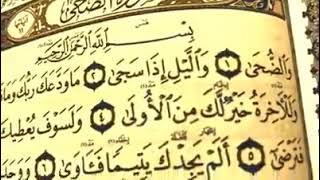 سورة الضحى
بِسْمِ اللَّهِ الرَّحْمَٰنِ الرَّحِيمِ
وَالضُّحَىٰ ١ وَاللَّيْلِ إِذَا سَجَىٰ ٢ مَا وَدَّعَكَ رَبُّكَ وَمَا
وَلَلْآخِرَةُ خَيْرٌ لَكَ مِنَ الْأُولَىٰ ٤ وَلَسَوْفَ يُعْطِيكَ
فَتَرْضَىٰ ٥ أَلَمْ يَجِدْكَ يَتِيمًا فَآوَىٰ ٦